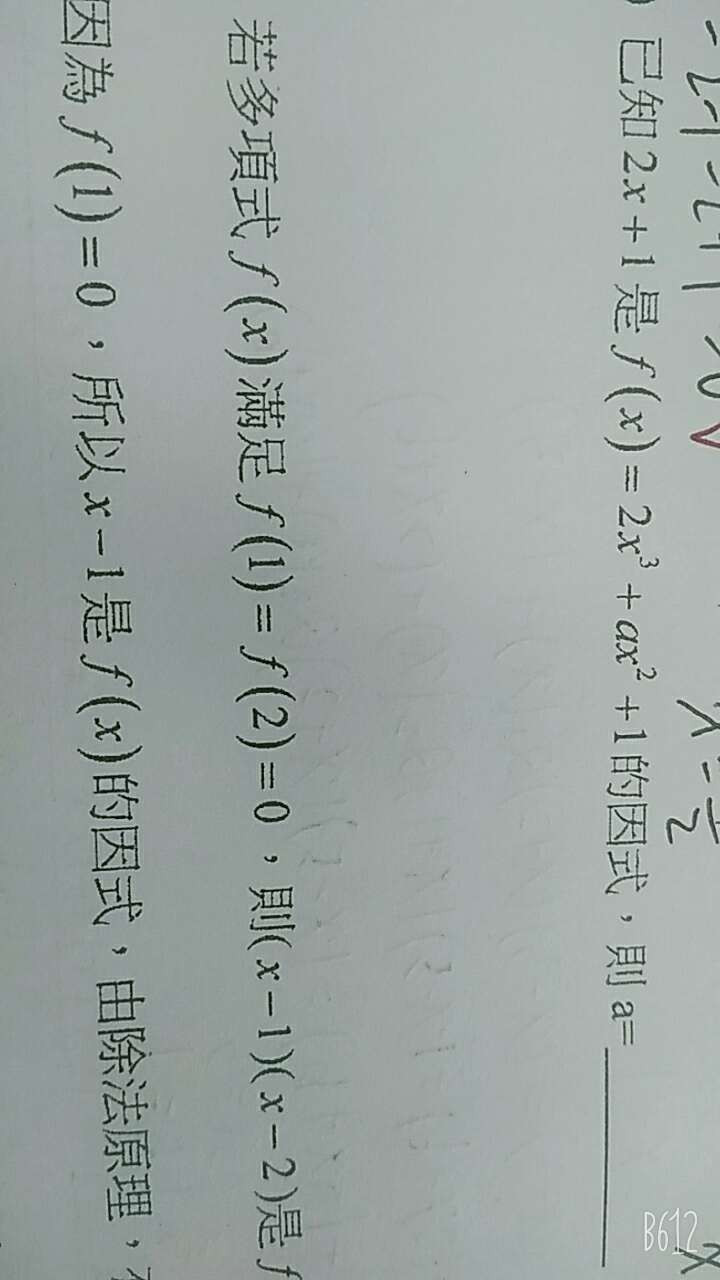 ) 已知 2x+1 是 f(x)=2x³+ax²+1 的因式,則 a=
若多項式 f(x) 滿足 f(1)=f(2)=0,則(x-1)(x-2)是 f
因為 f(1)=0,所以 x-1 是 f(x) 的因式,由除法原理,
B612